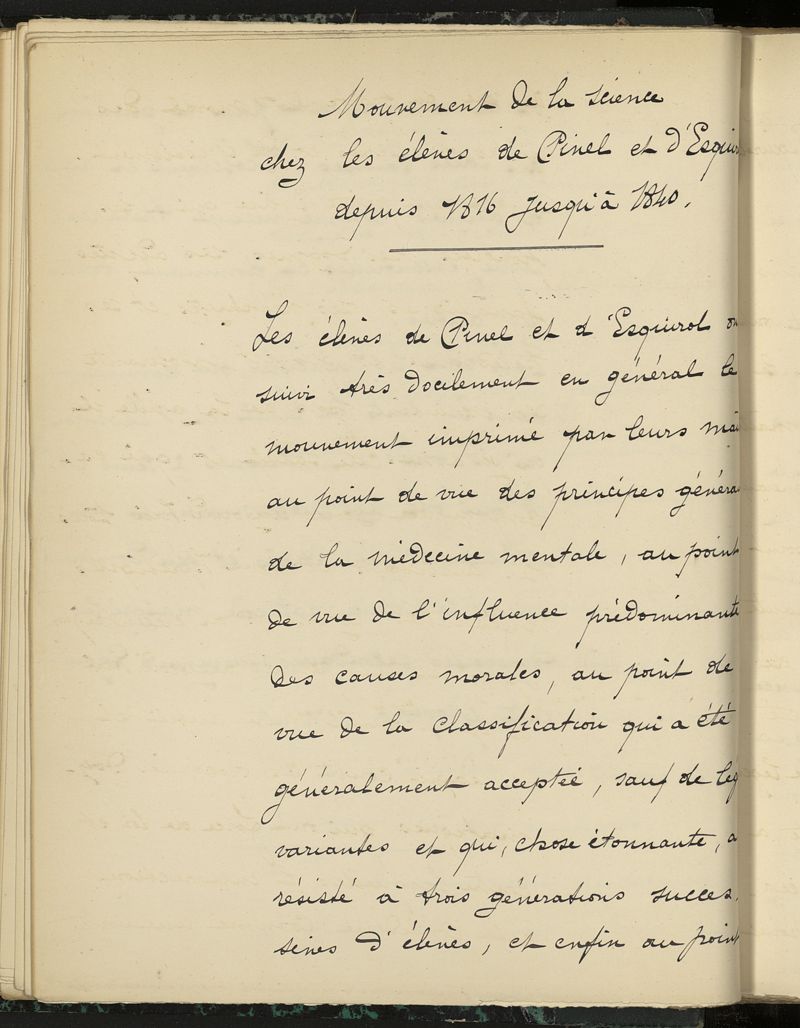 Mouvement de la science
chez les élèves de Pinel et d'Esqui
depuis 1816 jusqu'à 1840.
Les élèves de Pinel et d'Esquirol on
suivi très docilement en général le
mouvement imprimé par leurs maî
au point de vue des principes généra
de la médecine mentale, au point
de vue de l'influence prédominante
des causes morales, au point de
vue de la classification qui a été
généralement acceptée, sauf de lég
variantes et qui, chose étonnante, a
résisté à trois générations succes.
sives d'élèves, et enfin au point